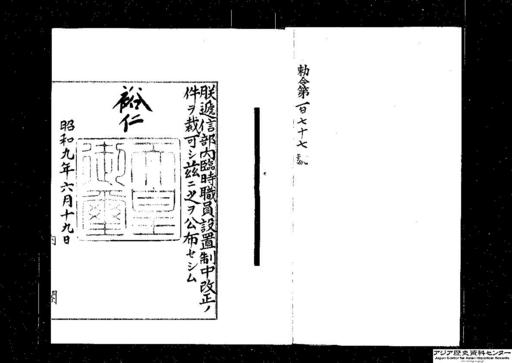 勅令第一百七十七号
朕遞信部内臨時職員設置制中改正ノ
件ヲ裁可シ茲ニ之ヲ公布セシム
裕仁
天皇
御璽
昭和九年六月十九日
内閣
アジア歴史資料センター
Japan Center for Asian Historical Records